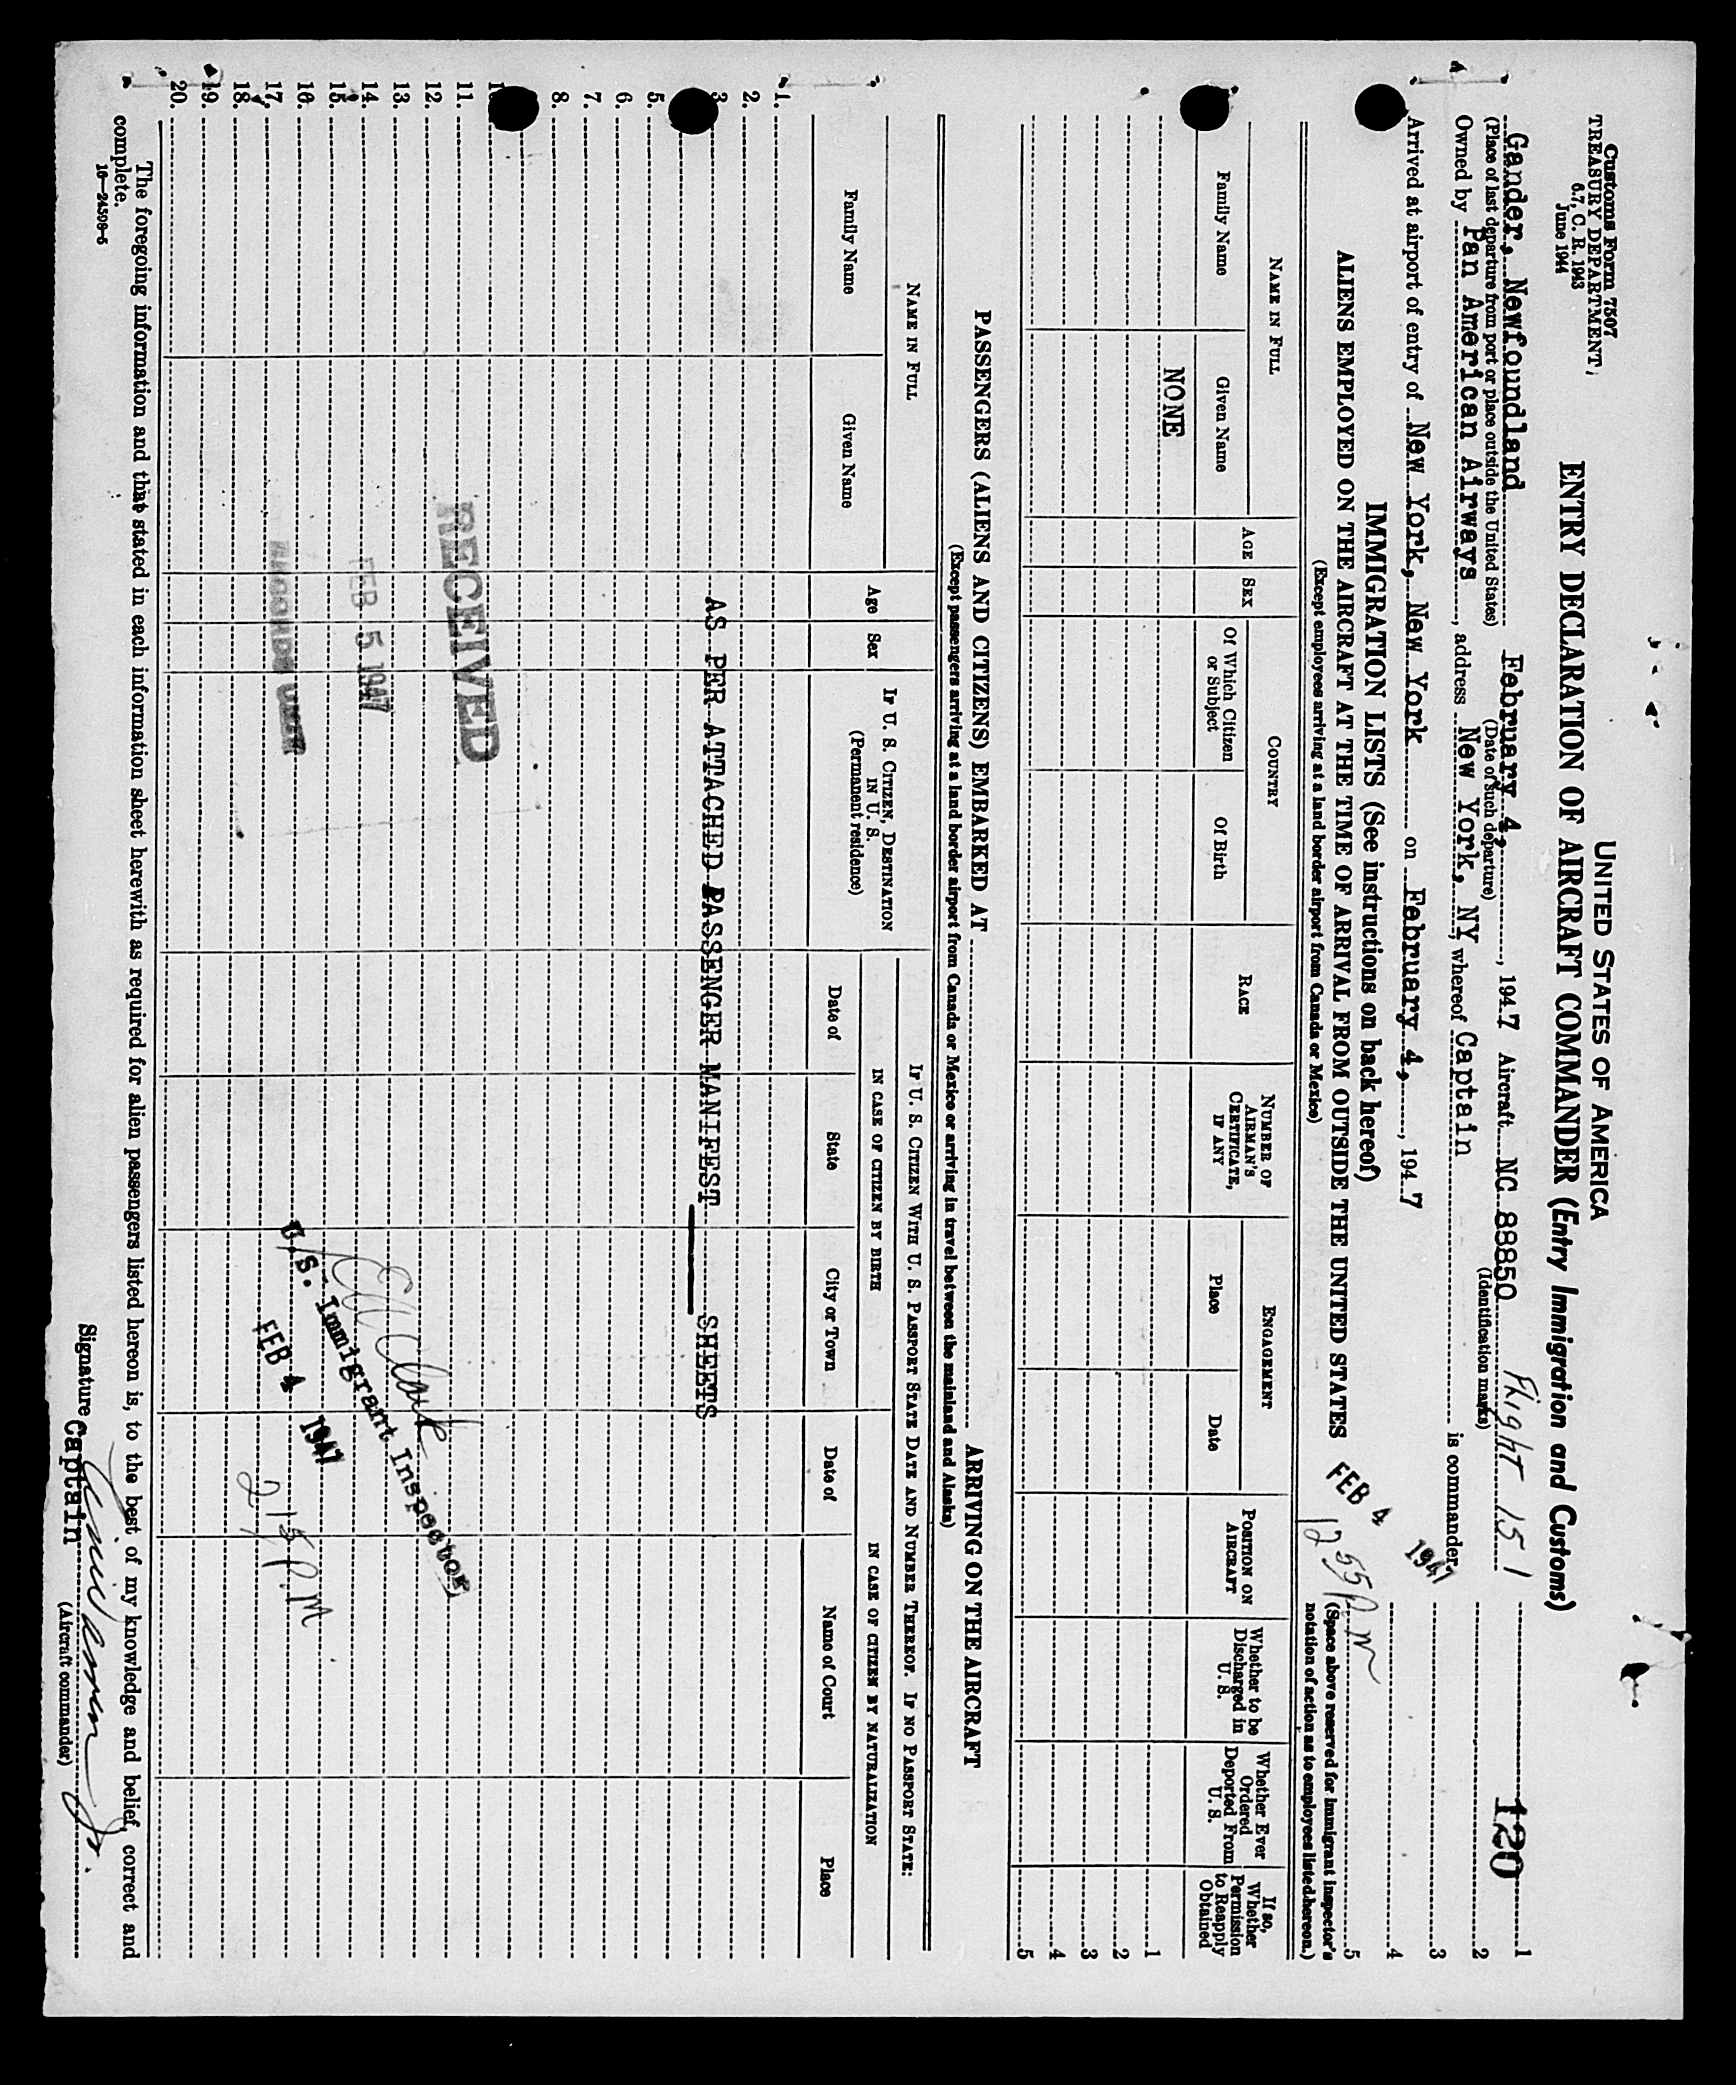 Customs Form 7507
TREASURY DEPARTMENT
6.7, C. R. 1943
June 1944
UNITED STATES OF AMERICA
ENTRY DECLARATION OF AIRCRAFT COMMANDER (Entry Immigration and Customs)
120
Gander, Newfoundland February 4, , 1947 Aircraft NC 88850 Flight 151
(Place of last departure from port or place outside the United States) (Date of such departure) (Identification marks)
Owned by Pan American Airways, address New York, NY, whereof Captain is commander,
Arrived at airport of entry of New York, New York on February 4, , 1947
FEB 4 1947
12 55 P M
1
2
3
4
5
(Space above reserved for immigrant inspector's notation of action as to employees listed hereon.)
IMMIGRATION LISTS (See instructions on back hereof)
ALIENS EMPLOYED ON THE AIRCRAFT AT THE TIME OF ARRIVAL FROM OUTSIDE THE UNITED STATES
(Except employees arriving at a land border airport from Canada or Mexico)
NAME IN FULL
Family Name
Given Name
AGE
SEX
COUNTRY
Of Which Citizen or Subject
Of Birth
RACE
NUMBER OF AIRMAN'S CERTIFICATE, IF ANY
ENGAGEMENT
Place
Date
POSITION ON AIRCRAFT
Whether to be Discharged in U. S.
Whether Ever Ordered Deported From U. S.
If so, Whether Permission to Reapply Obtained
NONE
1
2
3
4
5
PASSENGERS (ALIENS AND CITIZENS) EMBARKED AT ARRIVING ON THE AIRCRAFT
(Except passengers arriving at a land border airport from Canada or Mexico or arriving in travel between the mainland and Alaska)
NAME IN FULL
Family Name
Given Name
Age
Sex
IF U. S. CITIZEN, DESTINATION IN U. S.
(Permanent residence)
IF U. S. CITIZEN WITH U. S. PASSPORT STATE DATE AND NUMBER THEREOF. IF NO PASSPORT STATE:
IN CASE OF CITIZEN BY BIRTH
Date of
State
City or Town
IN CASE OF CITIZEN BY NATURALIZATION
Date of
Name of Court
Place
1.
2.
3.
AS PER ATTACHED PASSENGER MANIFEST SHEETS
5.
6.
7.
8.
11.
12.
13.
14.
15.
16.
17.
18.
19.
20.
RECEIVED
FEB 5 1947
U.S. Immigrant Inspector
FEB 4 1947
2 15 P.M
The foregoing information and that stated in each information sheet herewith as required for alien passengers listed hereon is, to the best of my knowledge and belief, correct and
complete.
16—24508-5
Signature
Captain
(Aircraft commander)